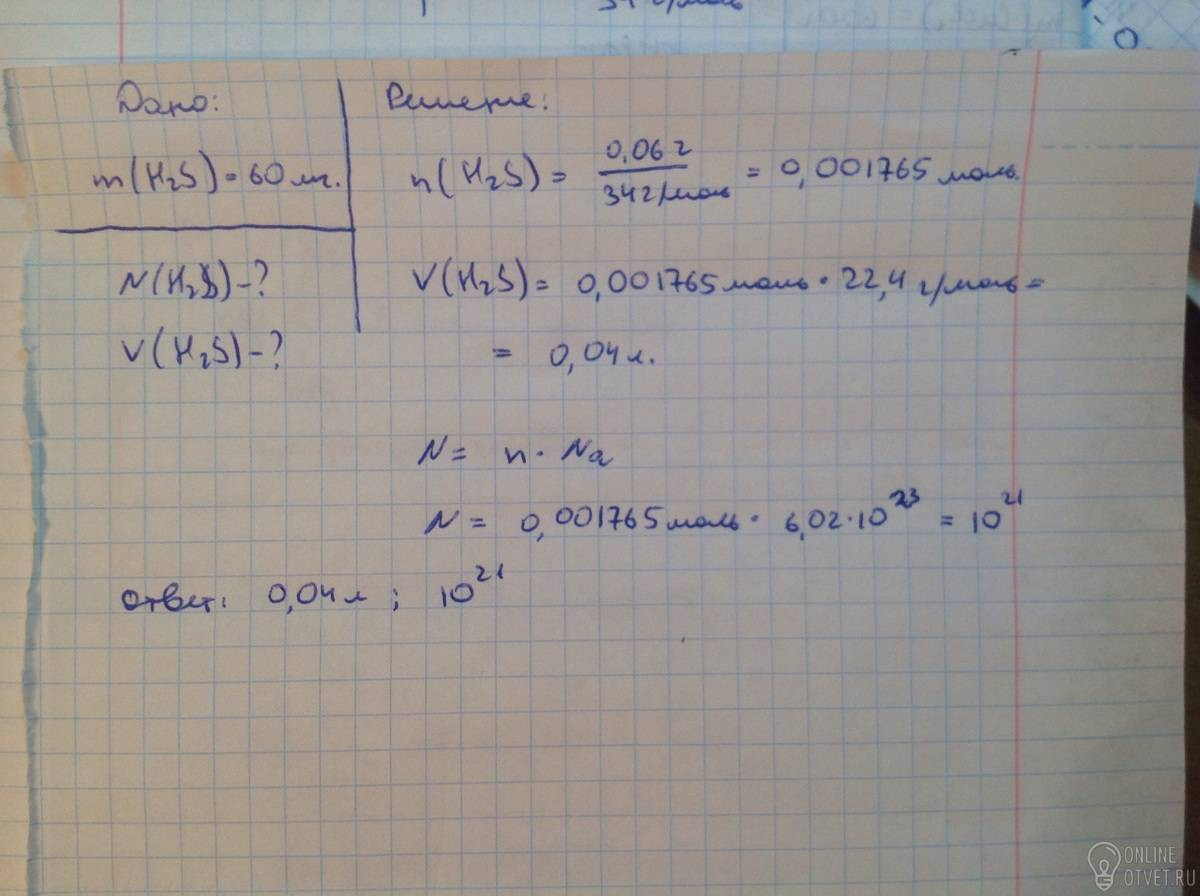 34 г/моль
Дано:
m(H₂S) = 60 мг.
N(H₂S) - ?
V(H₂S) - ?
Решение:
n(H₂S) = 0,06 г / 34 г/моль = 0,001765 моль.
V(H₂S) = 0,001765 моль · 22,4 г/моль =
= 0,04 л.
N = n · Na
N = 0,001765 моль · 6,02 · 10²³ = 10²¹
Ответ: 0,04 л ; 10²¹
ONLINE
OTVET.RU